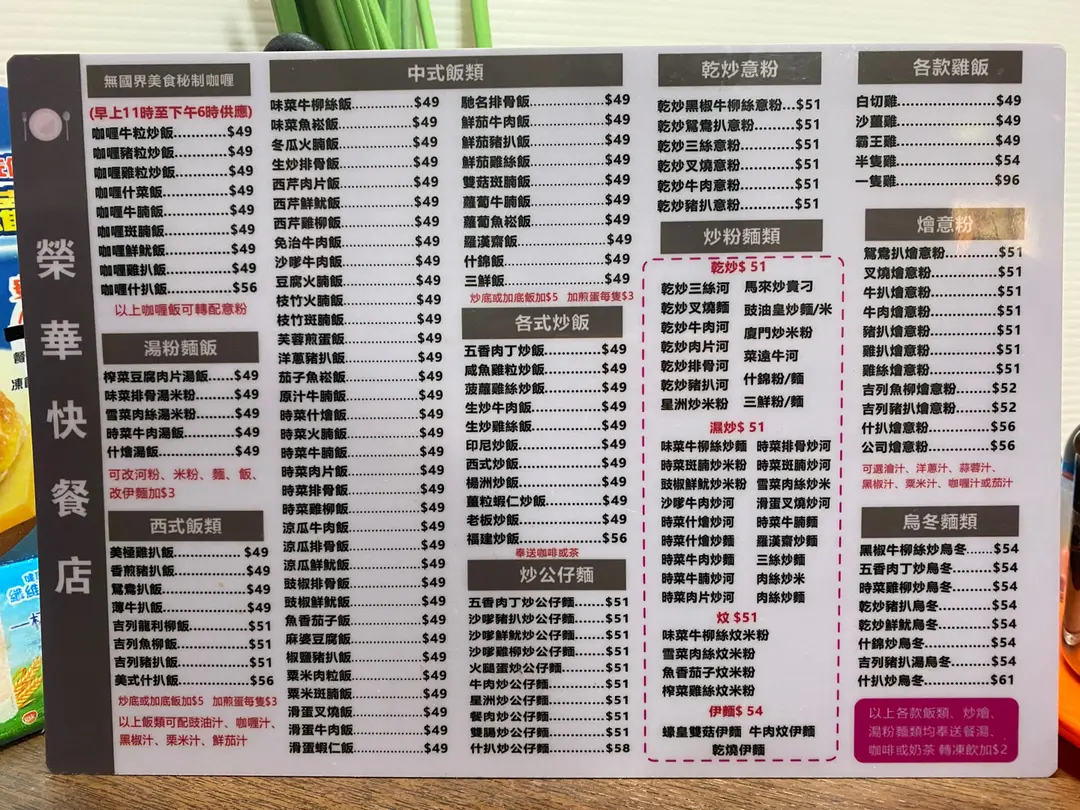 榮華快餐店
無國界美食秘制咖喱
(早上11時至下午6時供應)
咖喱牛粒炒飯............$49
咖喱豬粒炒飯............$49
咖喱雞粒炒飯............$49
咖喱什菜飯............$49
咖喱牛腩飯............$49
咖喱斑腩飯............$49
咖喱鮮魷飯............$49
咖喱雞扒飯............$49
咖喱什扒飯............$56
以上咖喱飯可轉配意粉
湯粉麵飯
榨菜豆腐肉片湯飯......$49
味菜排骨湯米粉......$49
雪菜肉絲湯米粉......$49
時菜牛肉湯飯......$49
什燴湯飯......$49
可改河粉、米粉、麵、飯、
改伊麵加$3
西式飯類
美極雞扒飯............$49
香煎豬扒飯............$49
鴛鴦扒飯............$49
薄牛扒飯............$49
吉列龍利柳飯............$51
吉列魚柳飯............$51
吉列豬扒飯............$51
美式什扒飯............$56
炒底或加底飯加$5 加煎蛋每隻$3
以上飯類可配豉油汁、咖喱汁、
黑椒汁、栗米汁、鮮茄汁
中式飯類
味菜牛柳絲飯............$49
味菜魚崧飯............$49
冬瓜火腩飯............$49
生炒排骨飯............$49
西芹肉片飯............$49
西芹鮮魷飯............$49
西芹雞柳飯............$49
免治牛肉飯............$49
沙嗲牛肉飯............$49
豆腐火腩飯............$49
枝竹火腩飯............$49
枝竹斑腩飯............$49
芙蓉煎蛋飯............$49
洋蔥豬扒飯............$49
茄子魚崧飯............$49
原汁牛腩飯............$49
時菜什燴飯............$49
時菜火腩飯............$49
時菜牛腩飯............$49
時菜肉片飯............$49
時菜排骨飯............$49
時菜雞柳飯............$49
涼瓜牛肉飯............$49
涼瓜排骨飯............$49
涼瓜鮮魷飯............$49
豉椒排骨飯............$49
豉椒鮮魷飯............$49
魚香茄子飯............$49
麻婆豆腐飯............$49
椒鹽豬扒飯............$49
粟米肉粒飯............$49
粟米斑腩飯............$49
滑蛋叉燒飯............$49
滑蛋牛肉飯............$49
滑蛋蝦仁飯............$49
馳名排骨飯............$49
鮮茄牛肉飯............$49
鮮茄豬扒飯............$49
鮮茄雞絲飯............$49
雙菇斑腩飯............$49
蘿蔔牛腩飯............$49
蘿蔔魚崧飯............$49
羅漢齋飯............$49
什錦飯............$49
三鮮飯............$49
炒底或加底飯加$5 加煎蛋每隻$3
各式炒飯
五香肉丁炒飯............$49
咸魚雞粒炒飯............$49
菠蘿雞絲炒飯............$49
生炒牛肉飯............$49
生炒雞絲飯............$49
印尼炒飯............$49
西式炒飯............$49
楊洲炒飯............$49
薑粒蝦仁炒飯............$49
老板炒飯............$49
福建炒飯............$56
奉送咖啡或茶
炒公仔麵
五香肉丁炒公仔麵......$51
沙嗲豬扒炒公仔麵......$51
沙嗲鮮魷炒公仔麵......$51
沙嗲雞柳炒公仔麵......$51
火腿蛋炒公仔麵......$51
牛肉炒公仔麵......$51
星洲炒公仔麵......$51
餐肉炒公仔麵......$51
雙腸炒公仔麵......$51
什扒炒公仔麵......$58
乾炒意粉
乾炒黑椒牛柳絲意粉...$51
乾炒鴛鴦扒意粉......$51
乾炒三絲意粉......$51
乾炒叉燒意粉......$51
乾炒牛肉意粉......$51
乾炒豬扒意粉......$51
炒粉麵類
乾炒$ 51
乾炒三絲河 馬來炒貴刁
乾炒叉燒麵 豉油皇炒麵/米
乾炒牛肉河 廈門炒米粉
乾炒肉片河 菜遠牛河
乾炒排骨河
乾炒豬扒河 什錦粉/麵
星洲炒米粉 三鮮粉/麵
濕炒$ 51
味菜牛柳絲炒麵 時菜排骨炒河
時菜斑腩炒米粉 時菜斑腩炒河
豉椒鮮魷炒米粉 雪菜肉絲炒米
沙嗲牛肉炒河 滑蛋叉燒炒河
時菜什燴炒河 時菜牛腩麵
時菜什燴炒麵 羅漢齋炒麵
時菜牛肉炒麵 三絲炒麵
時菜牛腩炒河 肉絲炒米
時菜肉片炒河 肉絲炒麵
炆 $51
味菜牛柳絲炆米粉
雪菜肉絲炆米粉
魚香茄子炆米粉
榨菜雞絲炆米粉
伊麵$ 54
蠔皇雙菇伊麵 牛肉炆伊麵
乾燒伊麵
各款雞飯
白切雞............$49
沙薑雞............$49
霸王雞............$49
半隻雞............$54
一隻雞............$96
燴意粉
鴛鴦扒燴意粉............$51
叉燒燴意粉............$51
牛扒燴意粉............$51
牛肉燴意粉............$51
豬扒燴意粉............$51
雞扒燴意粉............$51
雞絲燴意粉............$51
吉列魚柳燴意粉.........$52
吉列豬扒燴意粉.........$52
什扒燴意粉............$56
公司燴意粉............$56
可選燴汁、洋蔥汁、蒜蓉汁、
黑椒汁、粟米汁、咖喱汁或茄汁
烏冬麵類
黑椒牛柳絲炒烏冬......$54
五香肉丁炒烏冬......$54
時菜雞柳炒烏冬......$54
乾炒豬扒烏冬......$54
乾炒鮮魷烏冬......$54
什錦炒烏冬......$54
吉列豬扒湯烏冬......$54
什扒炒烏冬......$61
以上各款飯類、炒燴、
湯粉麵類均奉送餐湯、
咖啡或奶茶 轉凍飲加$2